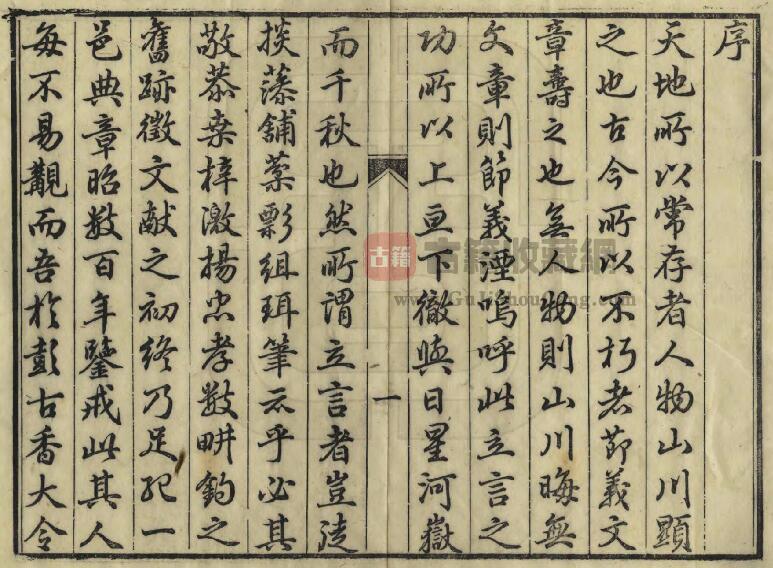 序
天地所以常存者人物山川顯
之也古今所以不朽者節義文
章壽之也無人物則山川晦無
文章則節義湮嗚呼此立言之
功所以上亘下徹與日星河嶽
一
而千秋也然所謂立言者豈徒
掞藻舖組珥筆云乎必其
敬恭桑梓激揚忠孝數畊釣之
舊跡徵文献之初終乃足紀一
邑典章昭数百年鑒戒此其人
每不易覯而吾於彭古香大令
古籍
古籍收藏網
www.GuJiShouCang.com